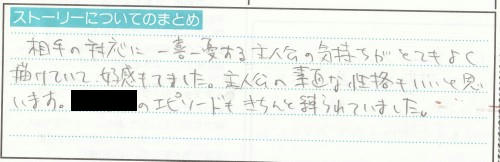 ストーリーについてのまとめ
相手の対応に一喜一憂する主人公の気持ちがとてもよく
描けていて好感もてました。主人公の な性格もいいと思
います。 のエピソードもきちんと練られていました。